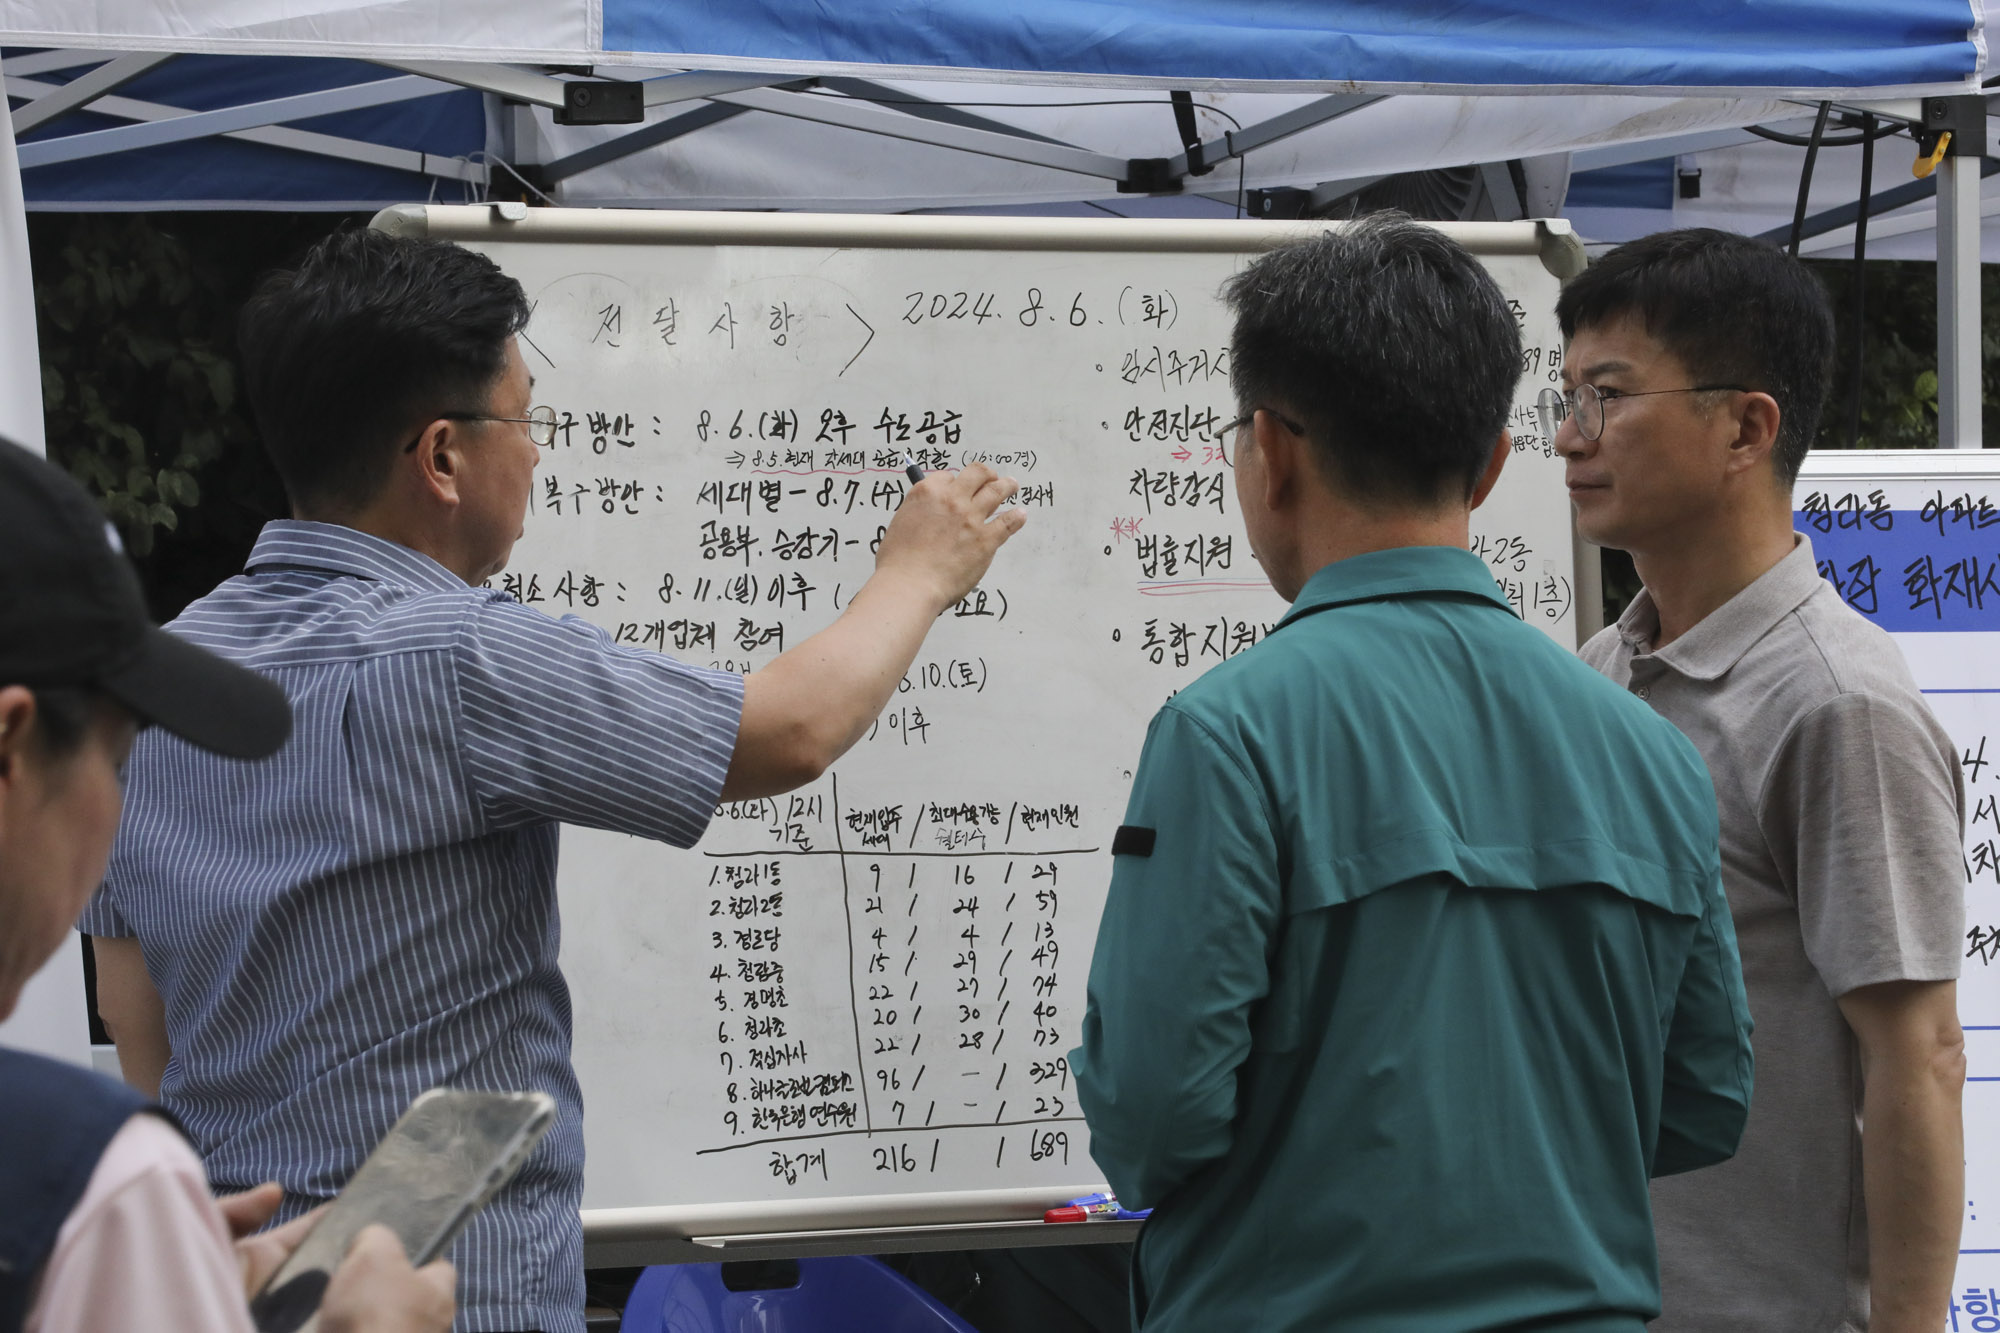 〈 전달사항 〉 2024. 8. 6. (화)
구방안 : 8. 6. (화) 오후 수도공급
⇒ 8.5. 현재 각세대 공급시작함 (16:00경)
복구방안 : 세대별 - 8.7. (수)
공용부. 승강기 - 8
청소사항 : 8. 11. (일) 이후 (
소요)
12개업체 참여
8.10. (토)
) 이후
• 임시주거시
89명
• 안전진단
⇒ 32
차량감식
** 
• 법률지원
2동
1층)
• 통합지원
8.6(화) 12시 기준 현재입주세대 / 최대수용가능 쉘터수 / 현재인원
1. 청라1동 9 / 16 / 29
2. 청라2동 21 / 24 / 59
3. 경로당 4 / 4 / 13
4. 청람중 15 / 29 / 49
5. 경명초 22 / 27 / 74
6. 청라초 20 / 30 / 40
7. 적십자사 22 / 28 / 73
8. 하나글로벌캠퍼스 96 / - / 329
9. 한국은행 연수원 7 / - / 23
합계 216 / / 689
청라동 아파트
화재
4.
시
차